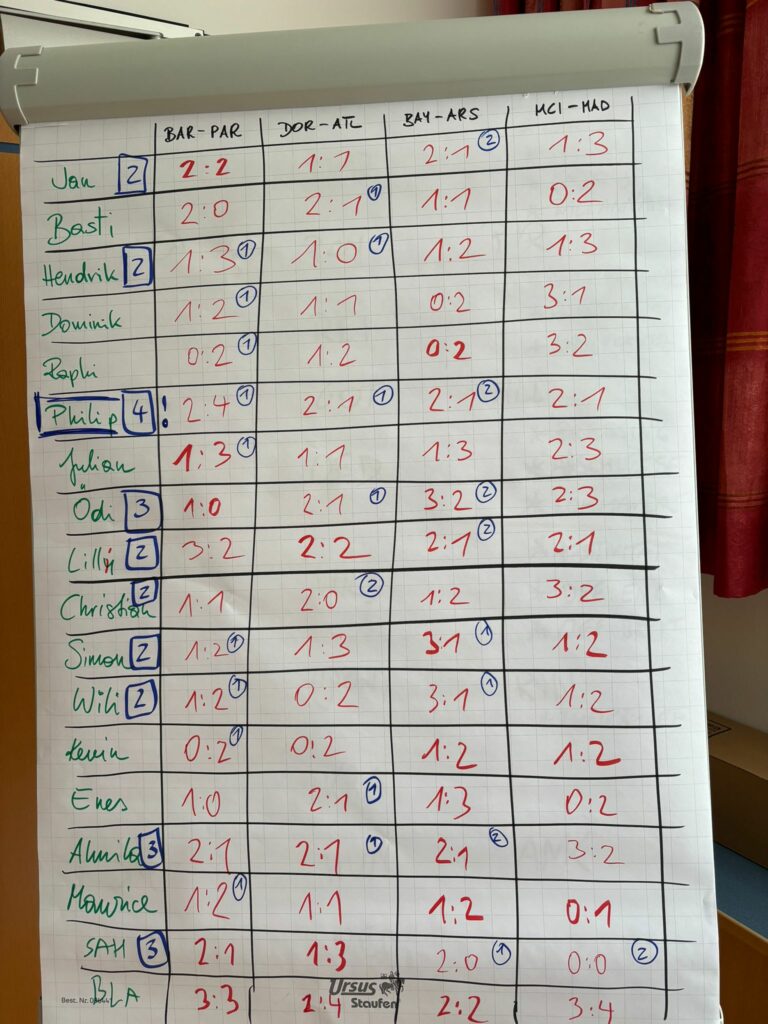 BAR-PAR DOR-ATL BAY-ARS MCI-MAD
Jan 2 2:2 1:1 2:1 2 1:3
Basti 2:0 2:1 1 1:1 0:2
Hendrik 2 1:3 1 1:0 1 1:2 1:3
Dominik 1:2 1 1:1 0:2 3:1
Raphi 0:2 1 1:2 0:2 3:2
Philip 4 ! 2:4 1 2:1 1 2:1 2 2:1
Julian 1:3 1 1:1 1:3 2:3
Ödi 3 1:0 2:1 1 3:2 2 2:3
Lilly 2 3:2 2:2 2:1 2 2:1
Christian 2 1:1 2:0 2 1:2 3:2
Simon 2 1:2 1 1:3 3:1 1 1:2
Wili 2 1:2 1 0:2 3:1 1 1:2
Kevin 0:2 1 0:2 1:2 1:2
Enes 1:0 2:1 1 1:3 0:2
3 2:1 2:1 1 2:1 2 3:2
Maurice 1:2 1 1:1 1:2 0:1
SAH 3 2:1 1:3 2:0 1 0:0 2
BLA 3:3 1:4 2:2 3:4
Ursus
Staufen
Best. Nr.